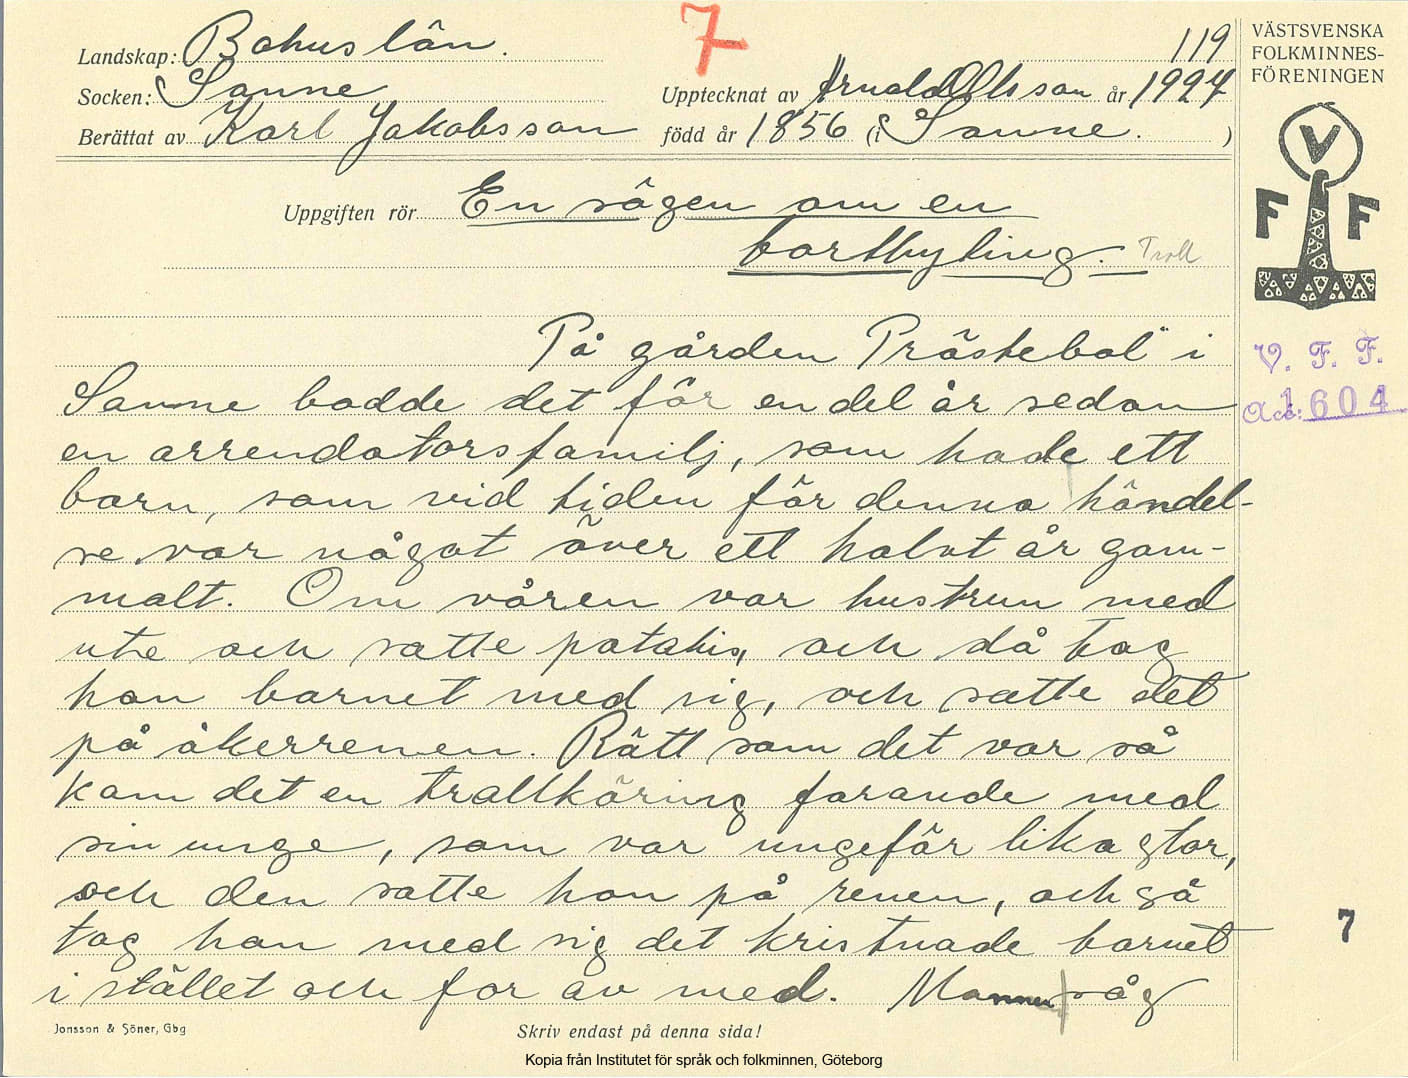 7
119
Landskap: Bohuslän.
Socken: Sanne
Upptecknat av Arnold Olsson år 1924
Berättat av Karl Jakobsson född år 1856 (i Sanne. )
VÄSTSVENSKA
FOLKMINNES-
FÖRENINGEN
V
F F
Uppgiften rör En sägen om en
bortbyting. Troll
V. F. F.
Acc: 1604
På gården Prästebol" i
Sanne bodde det för en del år sedan
en arrendatorsfamilj, som hade ett
barn, som vid tiden för denna händel-
se var något över ett halvt år gam-
malt. Om våren var hustrun med
ute och satte potatis, och då tog
hon barnet med sig, och satte det
på åkerrenen. Rätt som det var så
kom det en trollkäring farande med
sin unge, som var ungefär lika stor,
och den satte hon på renen, och så
tog hon med sig det kristnade barnet
i stället och for av med. Mannen såg
7
Jonsson & Söner, Gbg
Skriv endast på denna sida!
Kopia från Institutet för språk och folkminnen, Göteborg